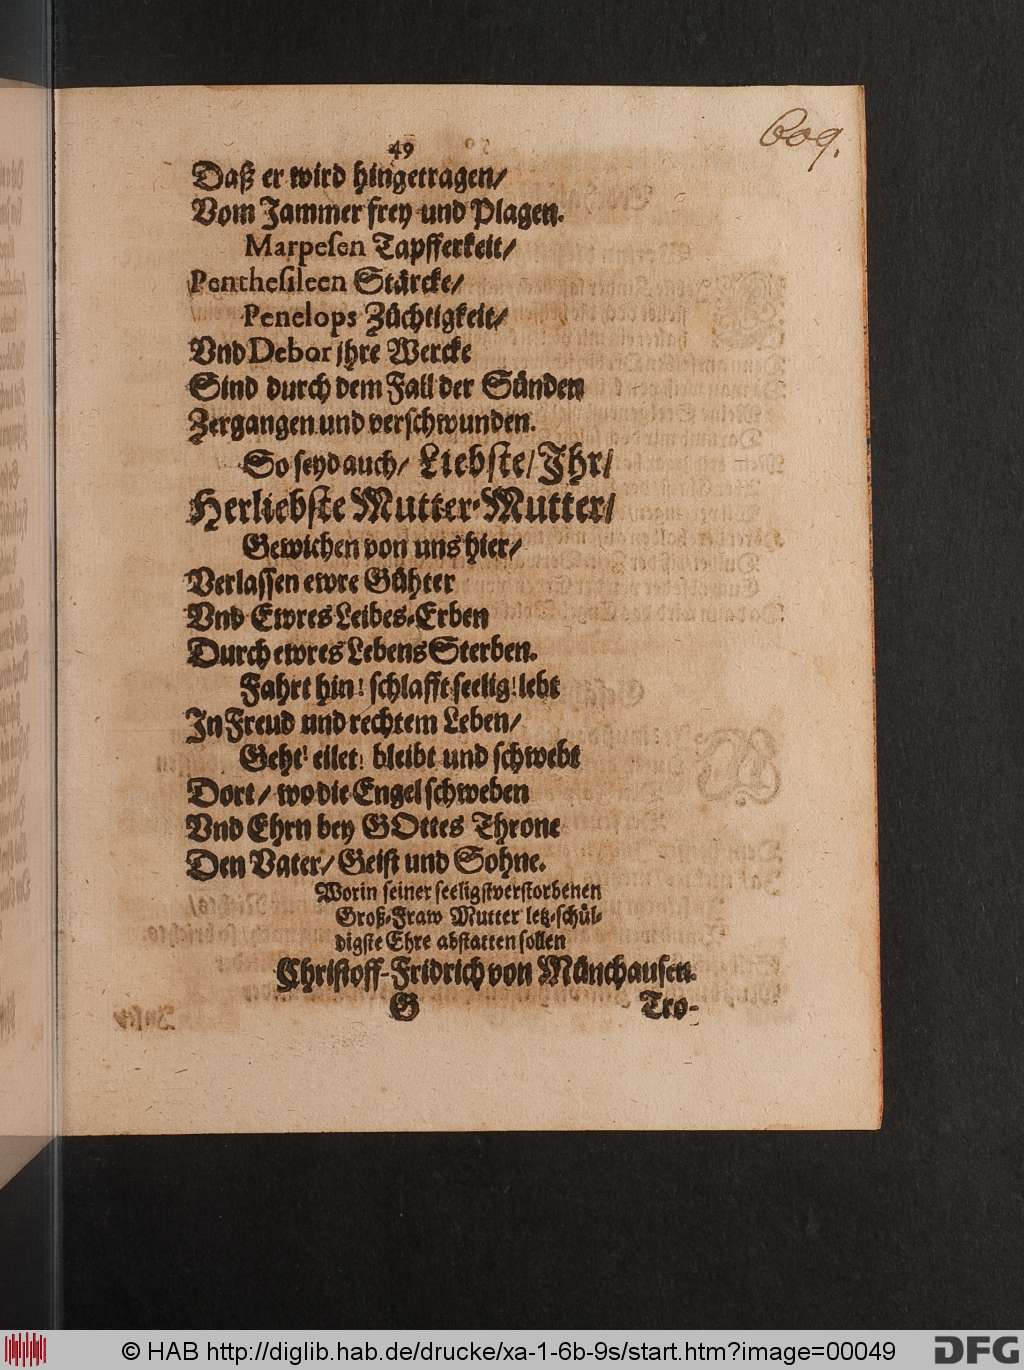 609.
49
Daß er wird hingetragen/
Vom Jammer frey und Plagen.
Marpeſen Tapfferkeit/
Pentheſileen Stärcke/
Penelops Züchtigkeit/
Vnd Debor jhre Wercke
Sind durch dem Fall der Sünden
Zergangen und verſchwunden.
So ſeyd auch/ Liebſte/ Jhr/
Herliebſte Mutter-Mutter/
Gewichen von uns hier/
Verlaſſen ewre Gühter
Vnd Ewres Leibes-Erben
Durch ewres Lebens Sterben.
Fahrt hin! ſchlafft ſeelig! lebt
Jn Freud und rechtem Leben/
Geht! eilet! bleibt und ſchwebt
Dort/ wo die Engel ſchweben
Vnd Ehrn bey GOttes Throne
Den Vater/ Geiſt und Sohne.
Worin ſeiner ſeeligſtverſtorbenen
Groß-Fraw Mutter letz-ſchül-
digſte Ehre abſtatten ſollen
Chriſtoff-Fridrich von Münchauſen.
G Tro-
© HAB http://diglib.hab.de/drucke/xa-1-6b-9s/start.htm?image=00049
DFG